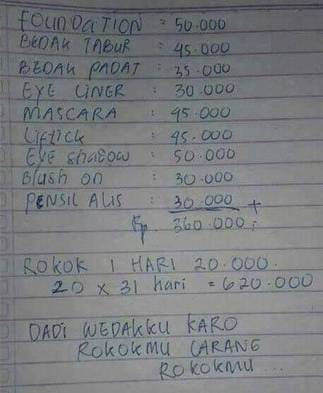 FOUNDATION = 50.000
BEDAK TABUR : 45.000
BEDAK PADAT : 35.000
EYE LINER : 30.000
MASCARA : 45.000
Liftick : 45.000
EYE shadow : 50.000
Blush on : 30.000
PENSIL ALIS : 30.000 +
Rp. 360.000,-
ROKOK 1 HARI 20.000.
20 X 31 hari = 620.000
DADI WEDAKKU KARO
ROKOKMU LARANG
ROKOKMU...